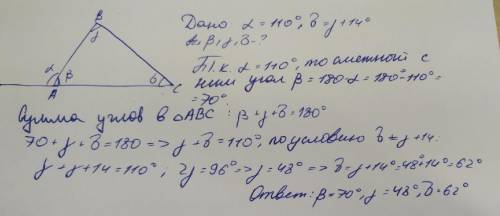 B
γ
α
β
A
δ
C
Дано α = 110°, δ = γ + 14°
β, γ, δ - ?
Т.к. α = 110°, то смежный с
ним угол β = 180 - α = 180° - 110° =
= 70°
Сумма углов в △ABC: β + γ + δ = 180°
70 + γ + δ = 180 => γ + δ = 110°, по условию δ = γ + 14.
γ + γ + 14 = 110°; 2γ = 96° => γ = 48° => δ = γ + 14° = 48° + 14° = 62°
Ответ: β = 70°, γ = 48°, δ = 62°